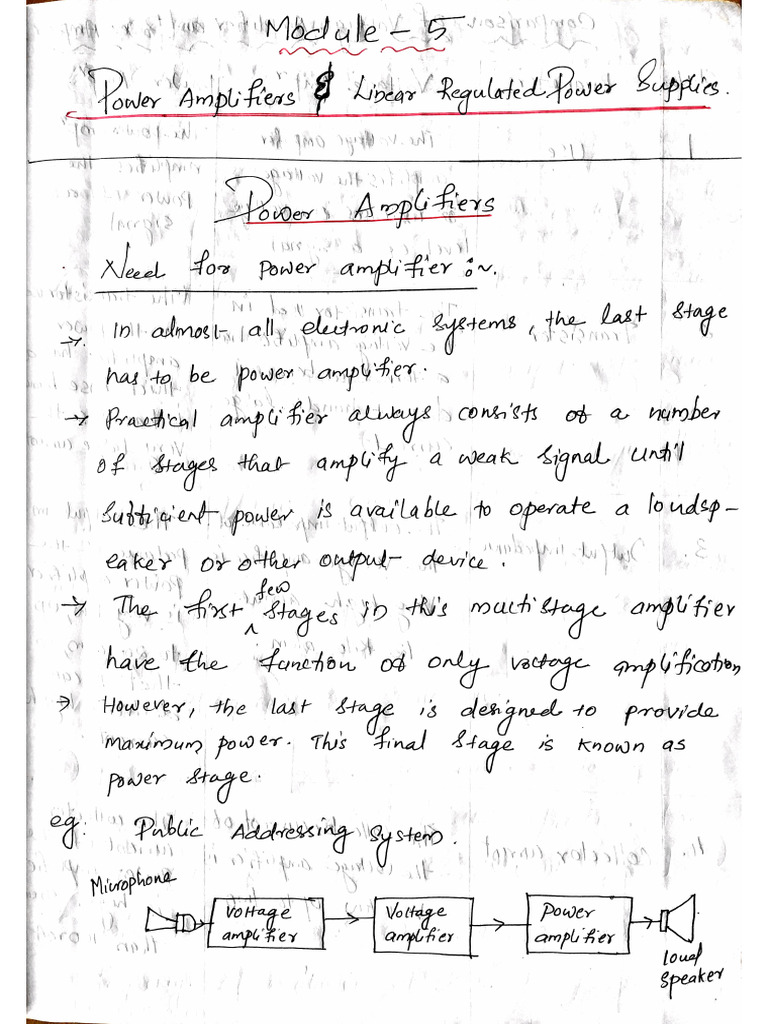 Module - 5
Power Amplifiers & Linear Regulated Power Supplies.
Power Amplifiers
Need for power amplifier :~.
→. In almost all electronic systems, the last stage
has to be power amplifier.
→ Practical amplifier always consists of a number
of stages that amplify a weak signal until
sufficient power is available to operate a loudsp-
eaker or other output device.
→ The first few stages in this multistage amplifier
have the function of only voltage amplification
→ However, the last stage is designed to provide
maximum power. This final stage is known as
power stage.
eg: Public Addressing System.
Microphone
Voltage amplifier
Voltage amplifier
Power amplifier
loud
speaker